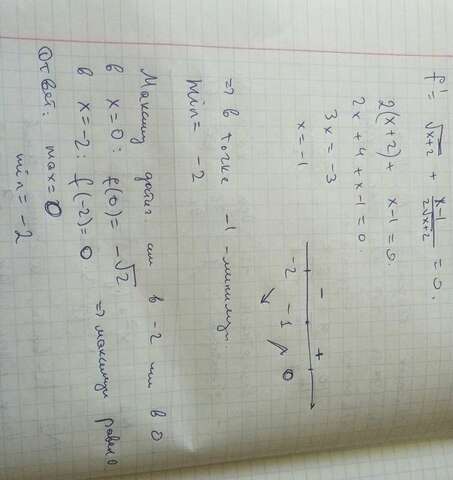 f' = √x+2 + x-1/2√x+2 = 0.
2(x+2) + x-1 = 0.
2x + 4 + x - 1 = 0.
3x = -3
x = -1
- +
-2 -1 0
=> в точке -1 - минимум.
min = -2
Максимум достиг. или в -2 или в 0
в x=0: f(0) = -√2
в x=-2: f(-2) = 0 => максимум равен 0
Ответ: max = 0
min = -2